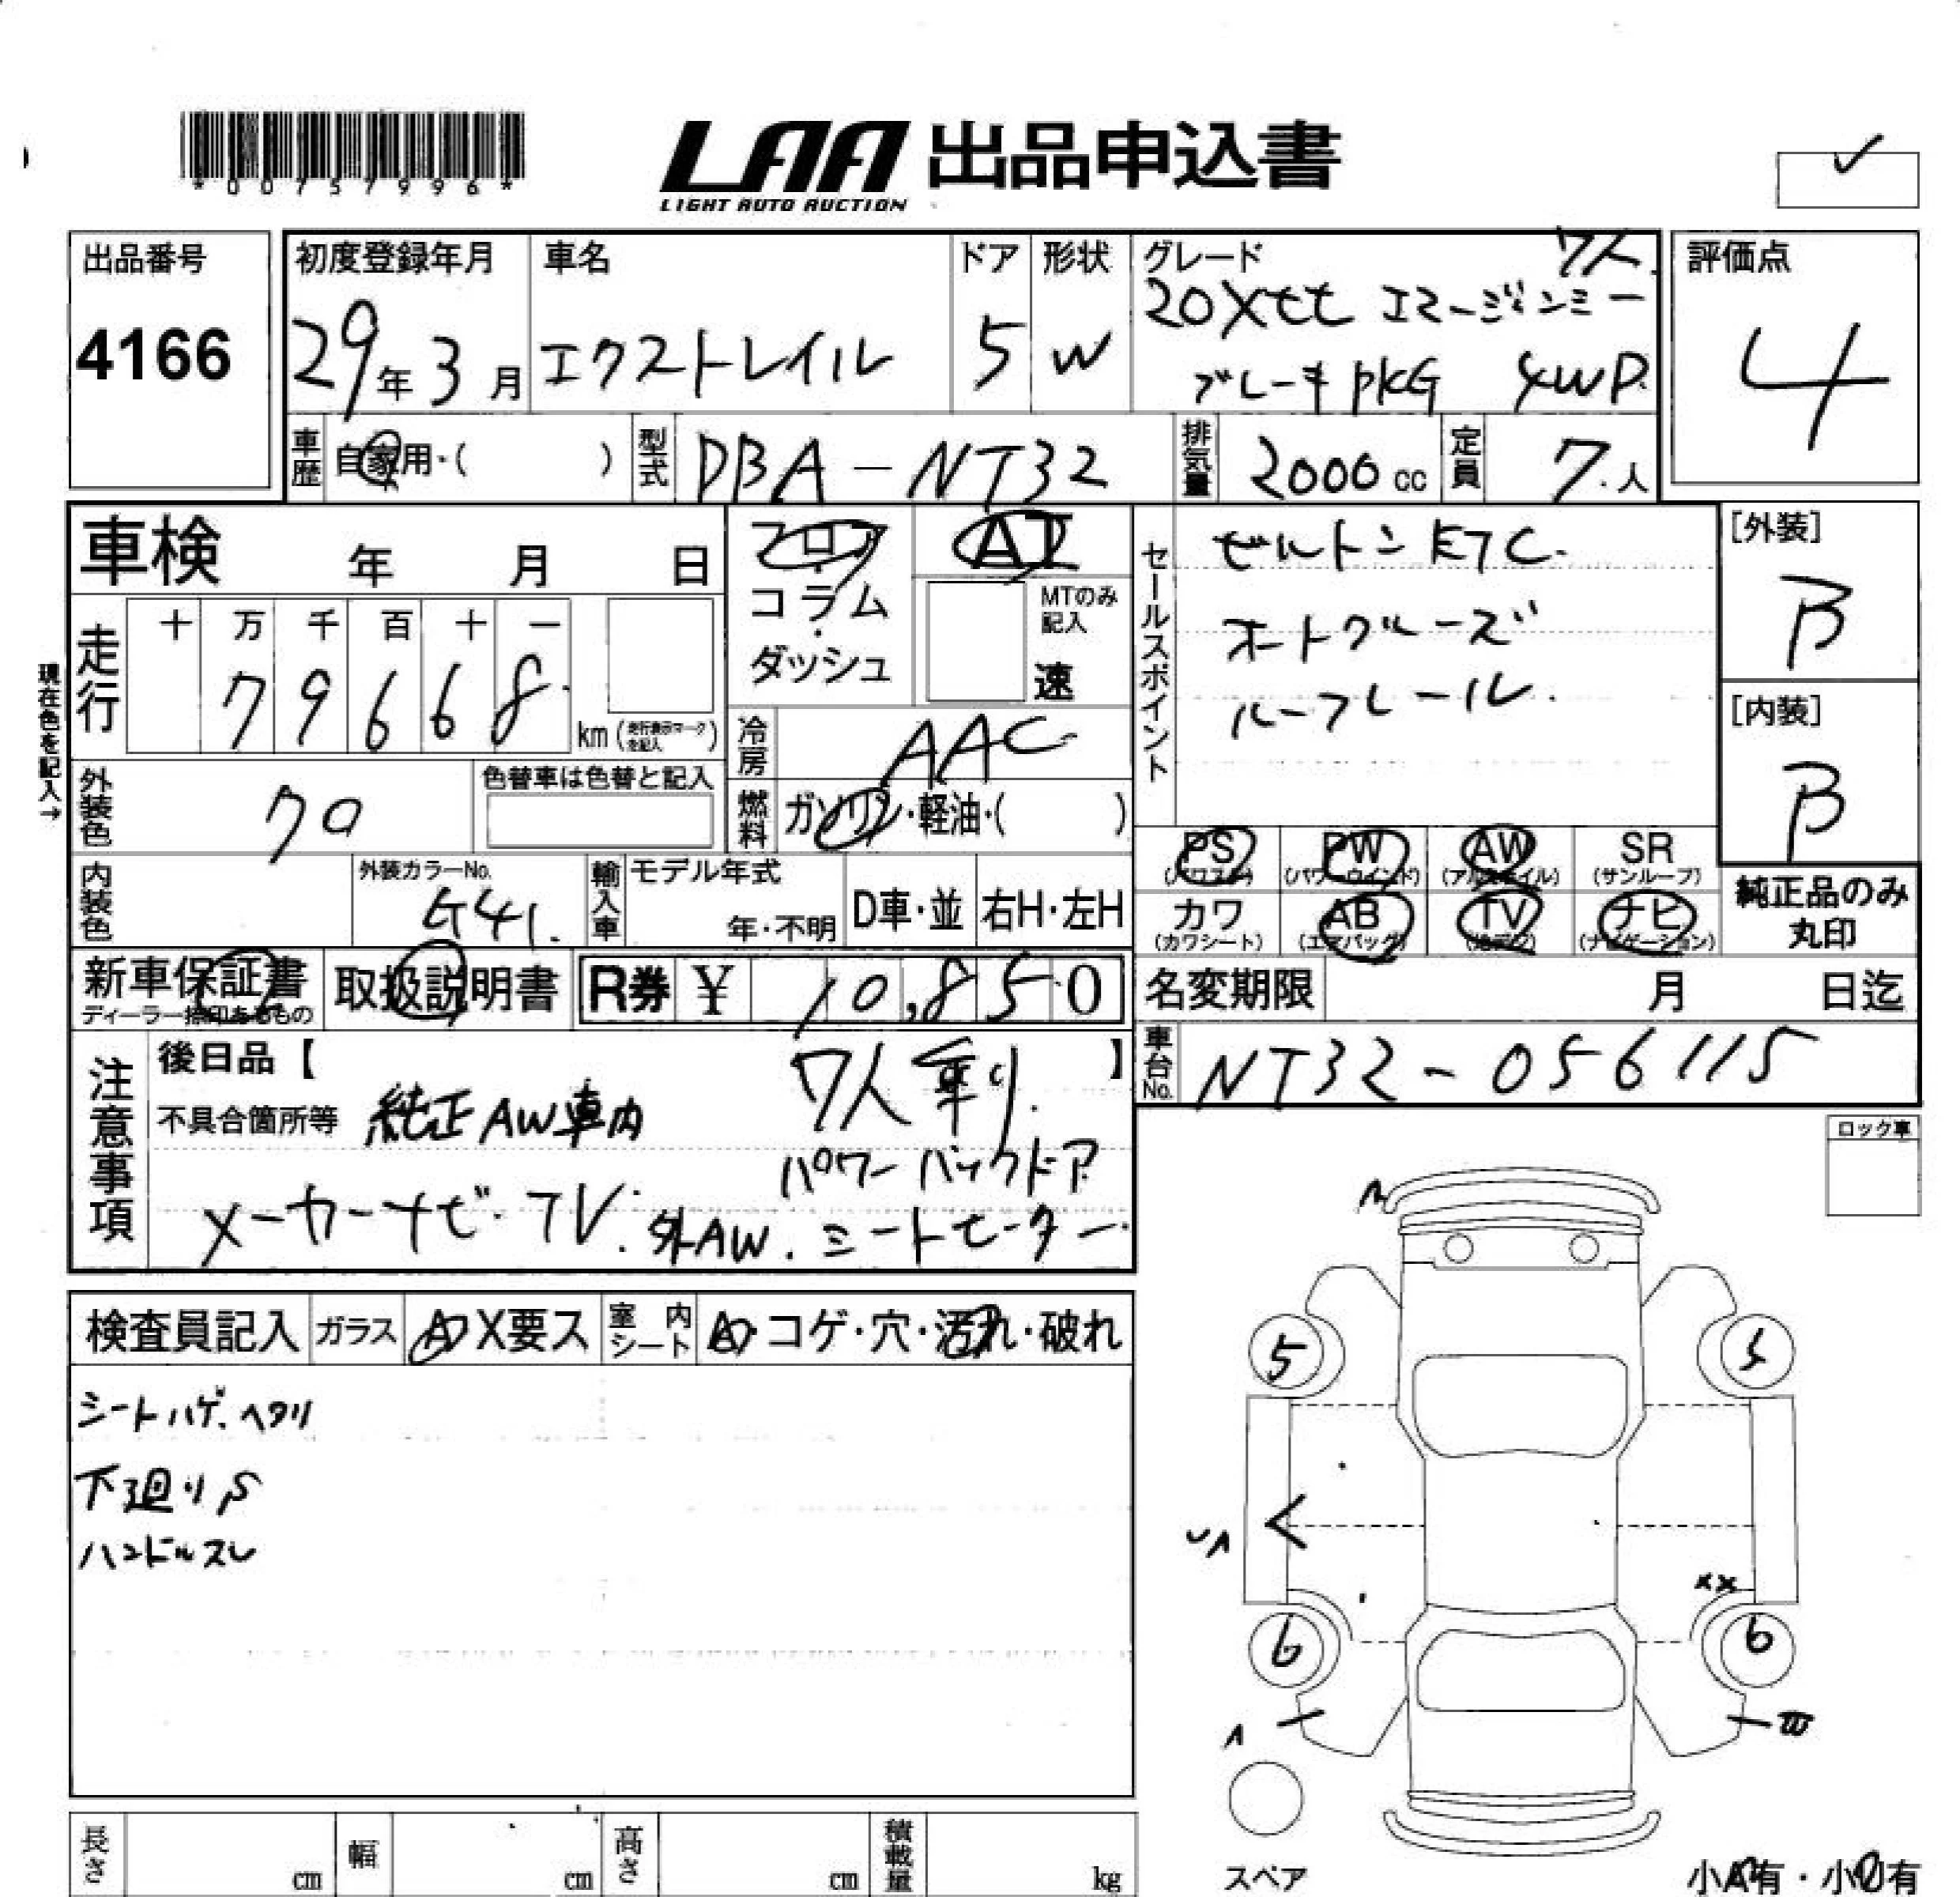 *00757996*
LAA 出品申込書
LIGHT AUTO AUCTION
出品番号
4166
初度登録年月
29年3月
車名
エクストレイル
ドア
5
形状
W
グレード 7人
20Xtt エマージェンシー
ブレーキPKG 4WD
評価点
4
車歴 自家用・( )
型式 DBA-NT32
排気量 2000cc
定員 7人
車検 年 月 日
フロア・コラム・ダッシュ
AT
MTのみ記入
速
セールスポイント
ビルトンETC.
オートクルーズ
ルーフレール.
[外装]
B
[内装]
B
現在色を記入→
走行
十 万 千 百 十 一
7 9 6 6 8
km(走行表示マークを記入)
冷房 AAC
燃料 ガソリン・軽油・( )
外装色 クロ
色替車は色替と記入
内装色
外装カラーNo.
G41.
輸入車
モデル年式
年・不明
D車・並
右H・左H
PS (パワステ)
PW (パワーウインド)
AW (アルミホイル)
SR (サンルーフ)
カワ (カワシート)
AB (エアバッグ)
TV (地デジ)
ナビ (ナビゲーション)
純正品のみ
丸印
新車保証書
ディーラー捺印あるもの
取扱説明書
R券 ¥ 10,850
名変期限 月 日迄
車台No. NT32-056115
注意事項
後日品【 】
7人乗り.
不具合箇所等 純正AW車内
パワーバックドア
メーカーナビ・TV. 外AW. シートヒーター.
ロック車
検査員記入
ガラス A・X要ス
室内シート A・コゲ・穴・汚れ・破れ
シートハゲ.ヘタリ
下廻りS
ハンドルスレ
5
5
6
6
XX
スペア
長さ cm
幅 cm
高さ cm
積載量 kg
小A有・小U有